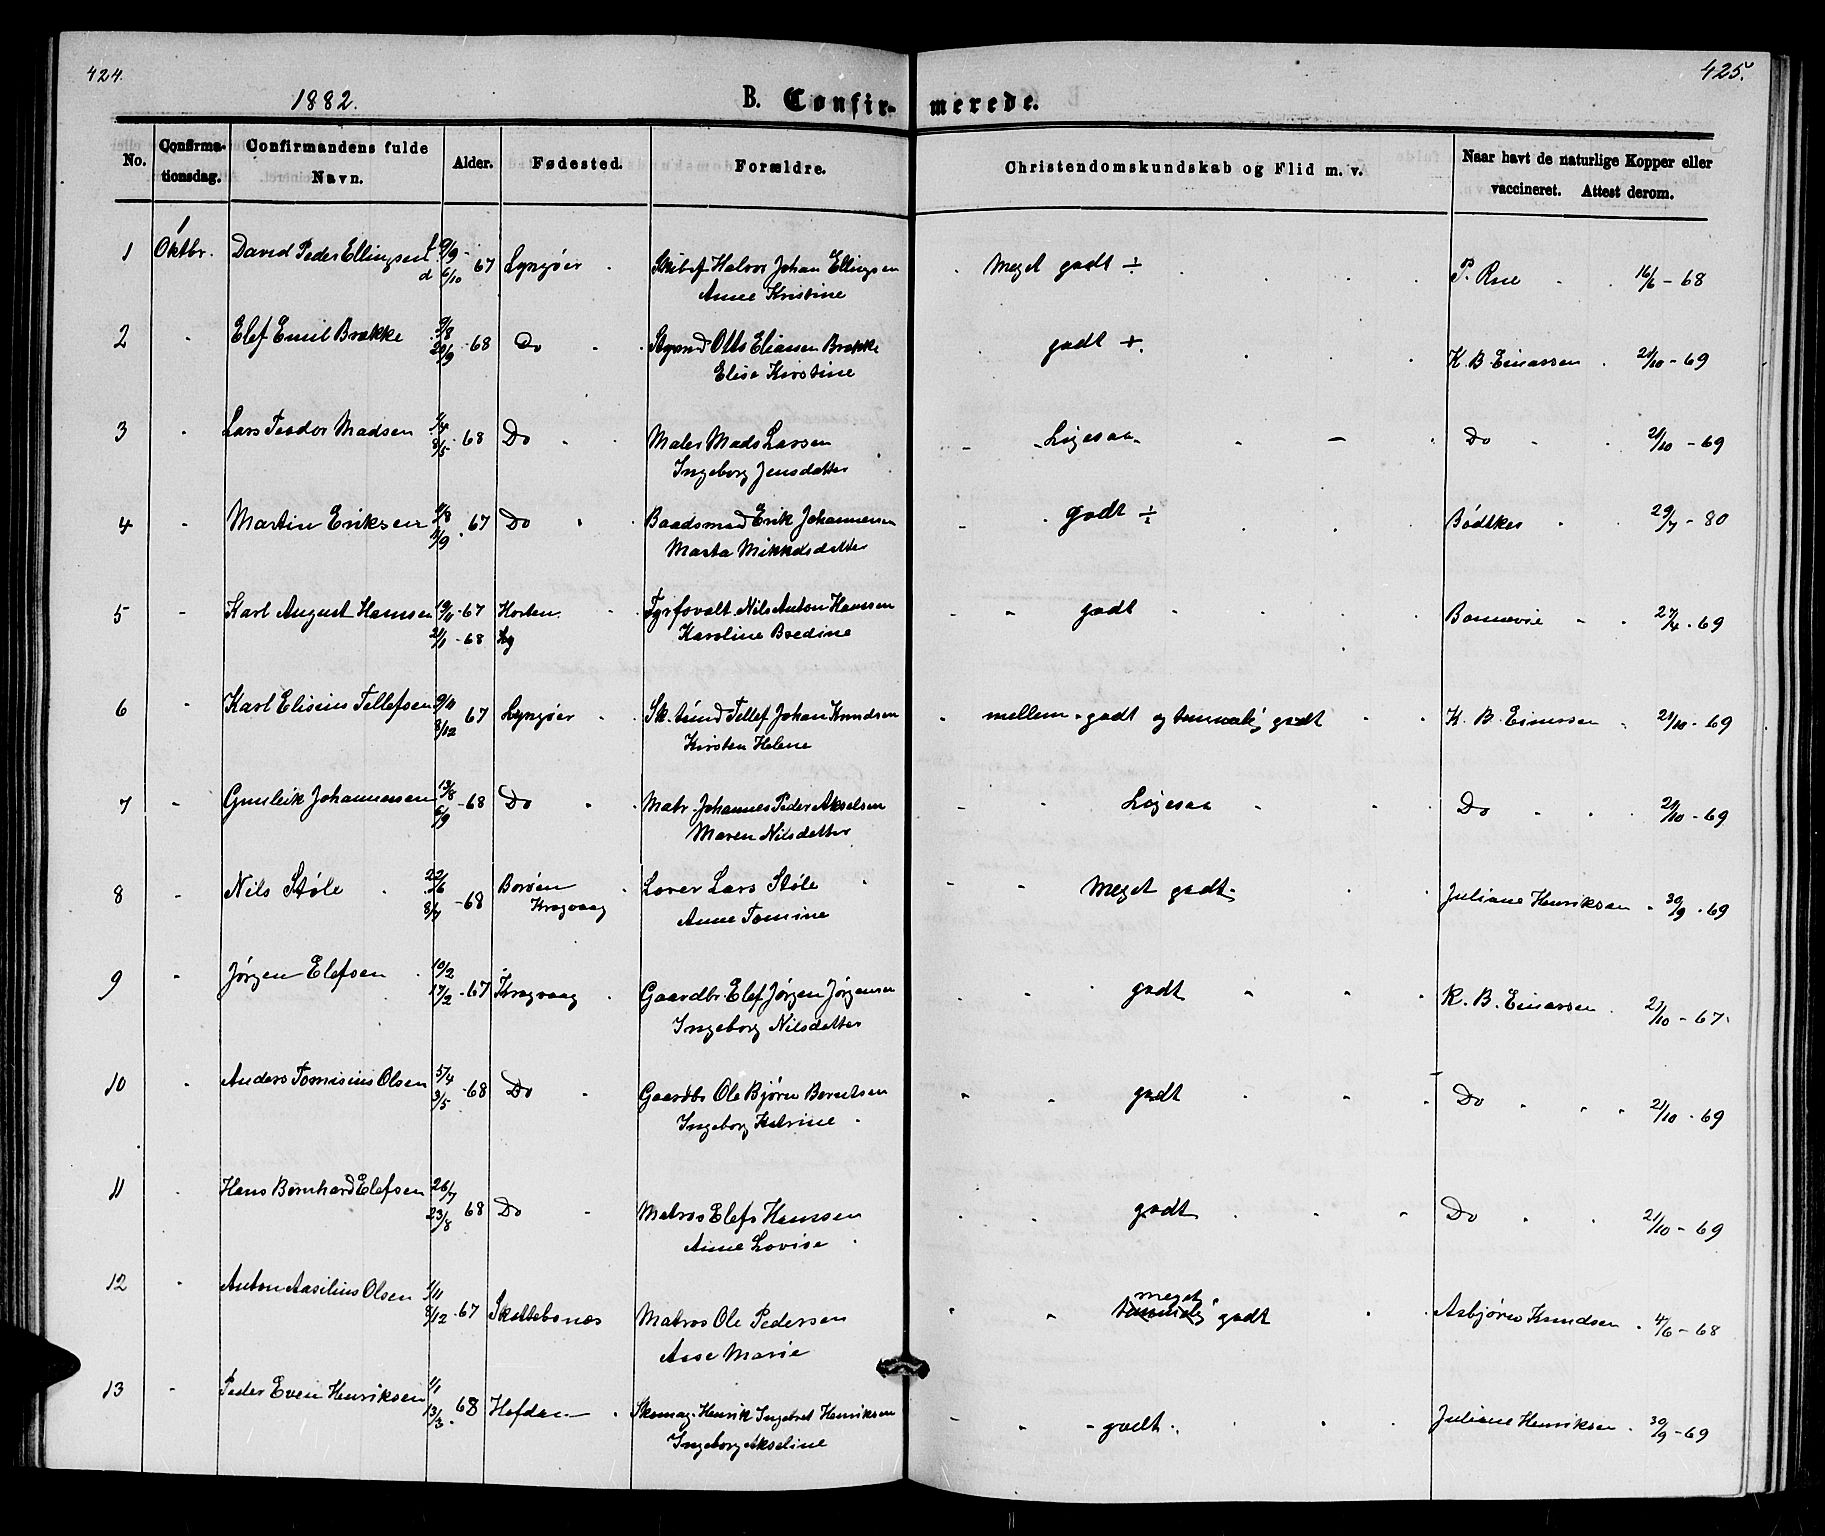 424.
425.
1882.
B. Confir- merede.
No.
Confirma-
tionsdag.
Confirmandens fulde
Navn.
Alder.
Fødested.
Forældre.
Christendomskundskab og Flid m. v.
Naar havt de naturlige Kopper eller
vaccineret. Attest derom.
1 1 Oktbr. David Peder Ellingsen f. 9/9 - d 6/10 67 Lyngøer Skibsf Halvor Johan Ellingsen Meget godt ÷ P. Rue 16/6 - 68
Anne Kristine
2 " Elef Emil Brække 9/8 20/9 - 68 Do Styrmd Otto Eliassen Brække godt +. K. B Einarsen 21/10 - 69
Elise Kirstine
3 " Lars Teodor Madsen 1/4 8/5 - 68 Do Maler Mads Larsen - Ligesaa - Do 21/10 - 69
Ingeborg Jensdatter
4 " Martin Eriksen 4/8 67 Do Baadsmd Erik Johannesen godt ÷ Bødtker 29/7 - 80
Marta Mikkelsdatter
5 " Karl August Hansen 19/11 - 67 Horten Fyrforvalt. Nils Anton Hanssen godt Bonnevie 27/4 - 69
21/1 - 68 Lg Karoline Bredine
6 " Karl Elisius Tellefsen 9/11 3/12 67 Lyngøer Sk. tømd Tellef Johan Knudsen mellem - godt og temmelig godt K. B. Einersen 21/10 - 69
Kirsten Helene
7 " Gunleik Johannessen 13/8 6/9 - 68 Do Matr. Johannes Peder Akselsen Ligesaa Do 21/10 - 69
Maren Nilsdatter
8 " Nils Støle 22/6 8/7 - 68 Borøen Lars Støle Meget godt - Juliane Henriksen 30/9 - 69
Kragvaag Anne Tomine
9 " Jørgen Elefsen 10/2 17/2 - 67 Kragvaag Gaardbr. Elef Jørgen Jørgensen godt K. B. Einarsen 21/10 - 67
Ingeborg Nilsdatter
10 " Anders Tomisius Olsen 5/4 3/5 - 68 Do Gaardbr Ole Bjørn Berntsen godt Do 21/10 - 69
Ingeborg Katrine
11 " Hans Bernhard Elefsen 26/7 23/8 68 Do Matros Elefs Hanssen godt Do 21/10 - 69
Anne Lovise
12 " Anton Aasilius Olsen 1/11 8/12 - 67 Skottebonæs Matros Ole Pedersen temmelig meget godt Asbjørn Knudsen 4/6 - 68
Asse Marie
13 " Peder Even Henriksen 1/1 13/3 68 Hofden Skomag. Henrik Ingebret Henriksen - godt - Juliane Henriksen 30/9 - 69
Ingeborg Akseline